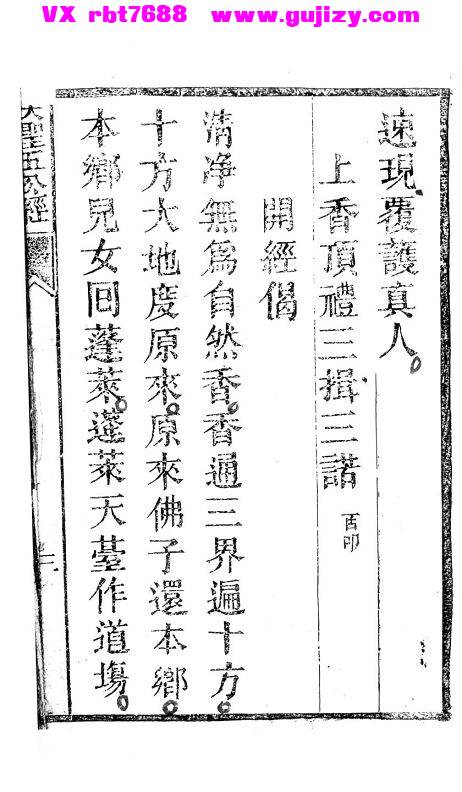 VX rbt7688 www.gujizy.com
速現覆護真人。
上香頂禮三揖三諾 百叩
開經偈
清净無為自然香。香通三界遍十方。
十方大地度原來。原來佛子還本鄉。
本鄉兒女回蓬萊。蓬萊天臺作道場。
大聖五公經